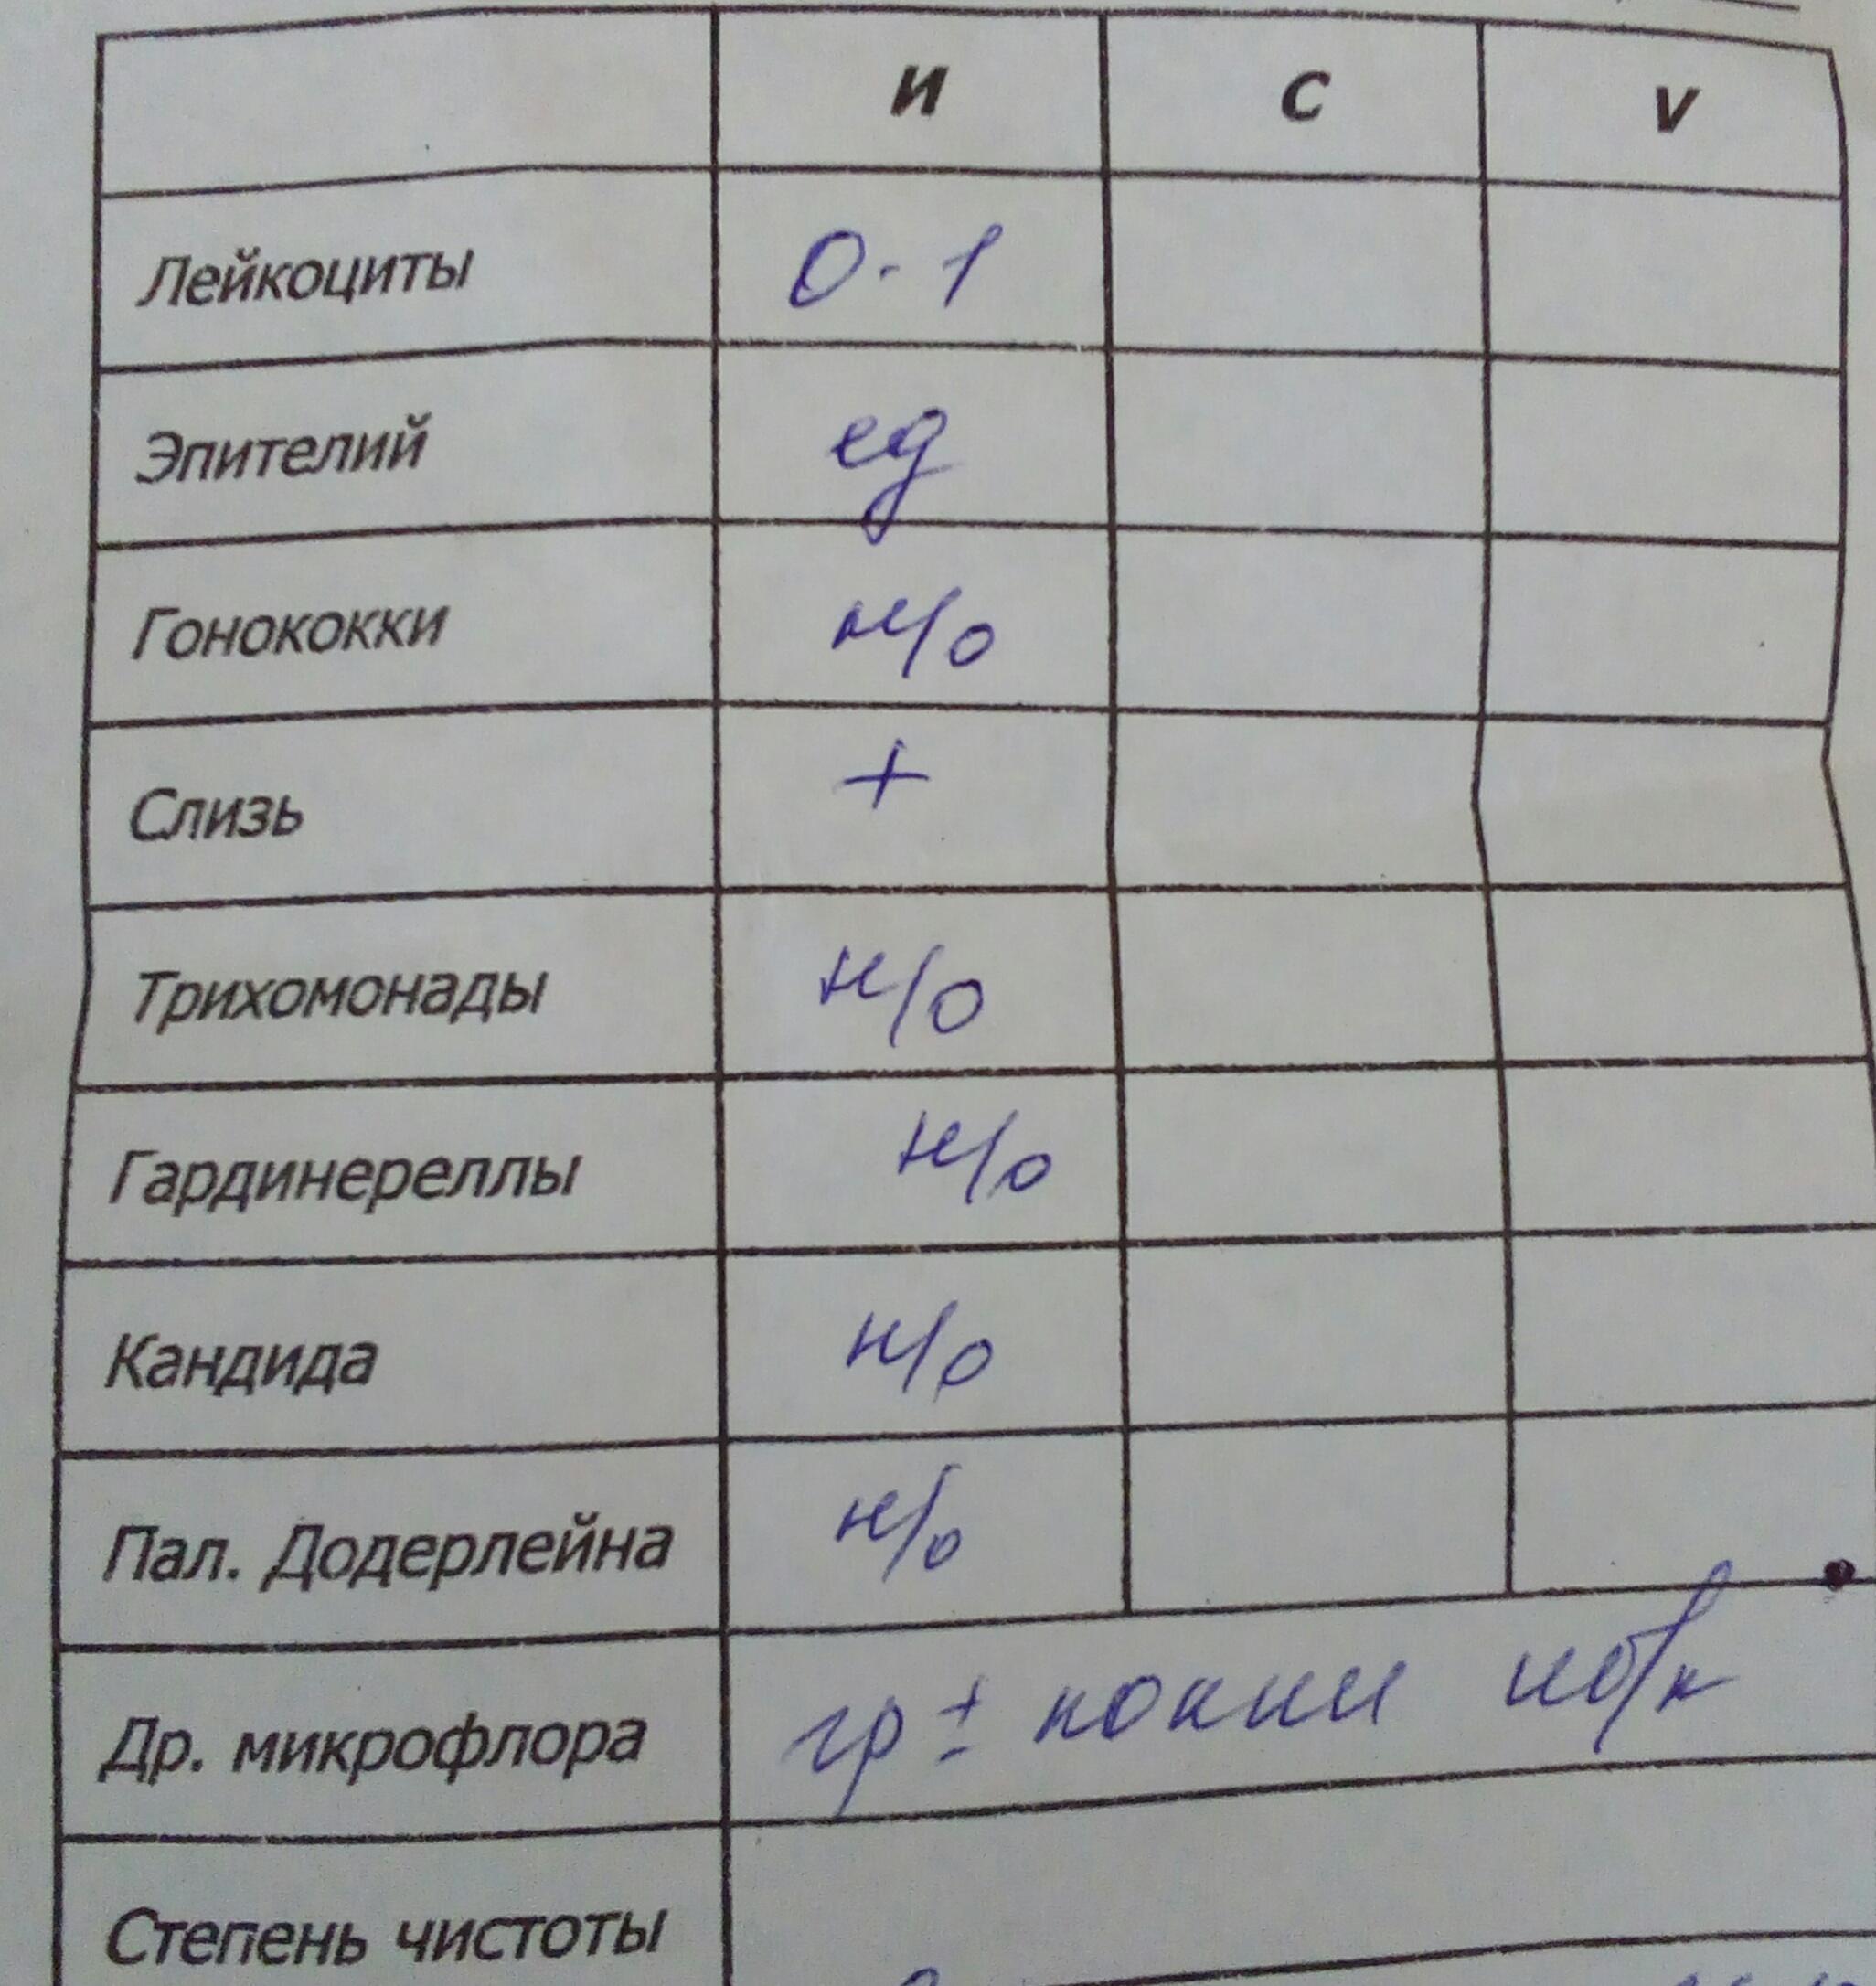 И С V
Лейкоциты 0-1
Эпителий ед
Гонококки н/о
Слизь +
Трихомонады н/о
Гардинереллы н/о
Кандида н/о
Пал. Додерлейна н/о
Др. микрофлора гр ± кокки
Степень чистоты